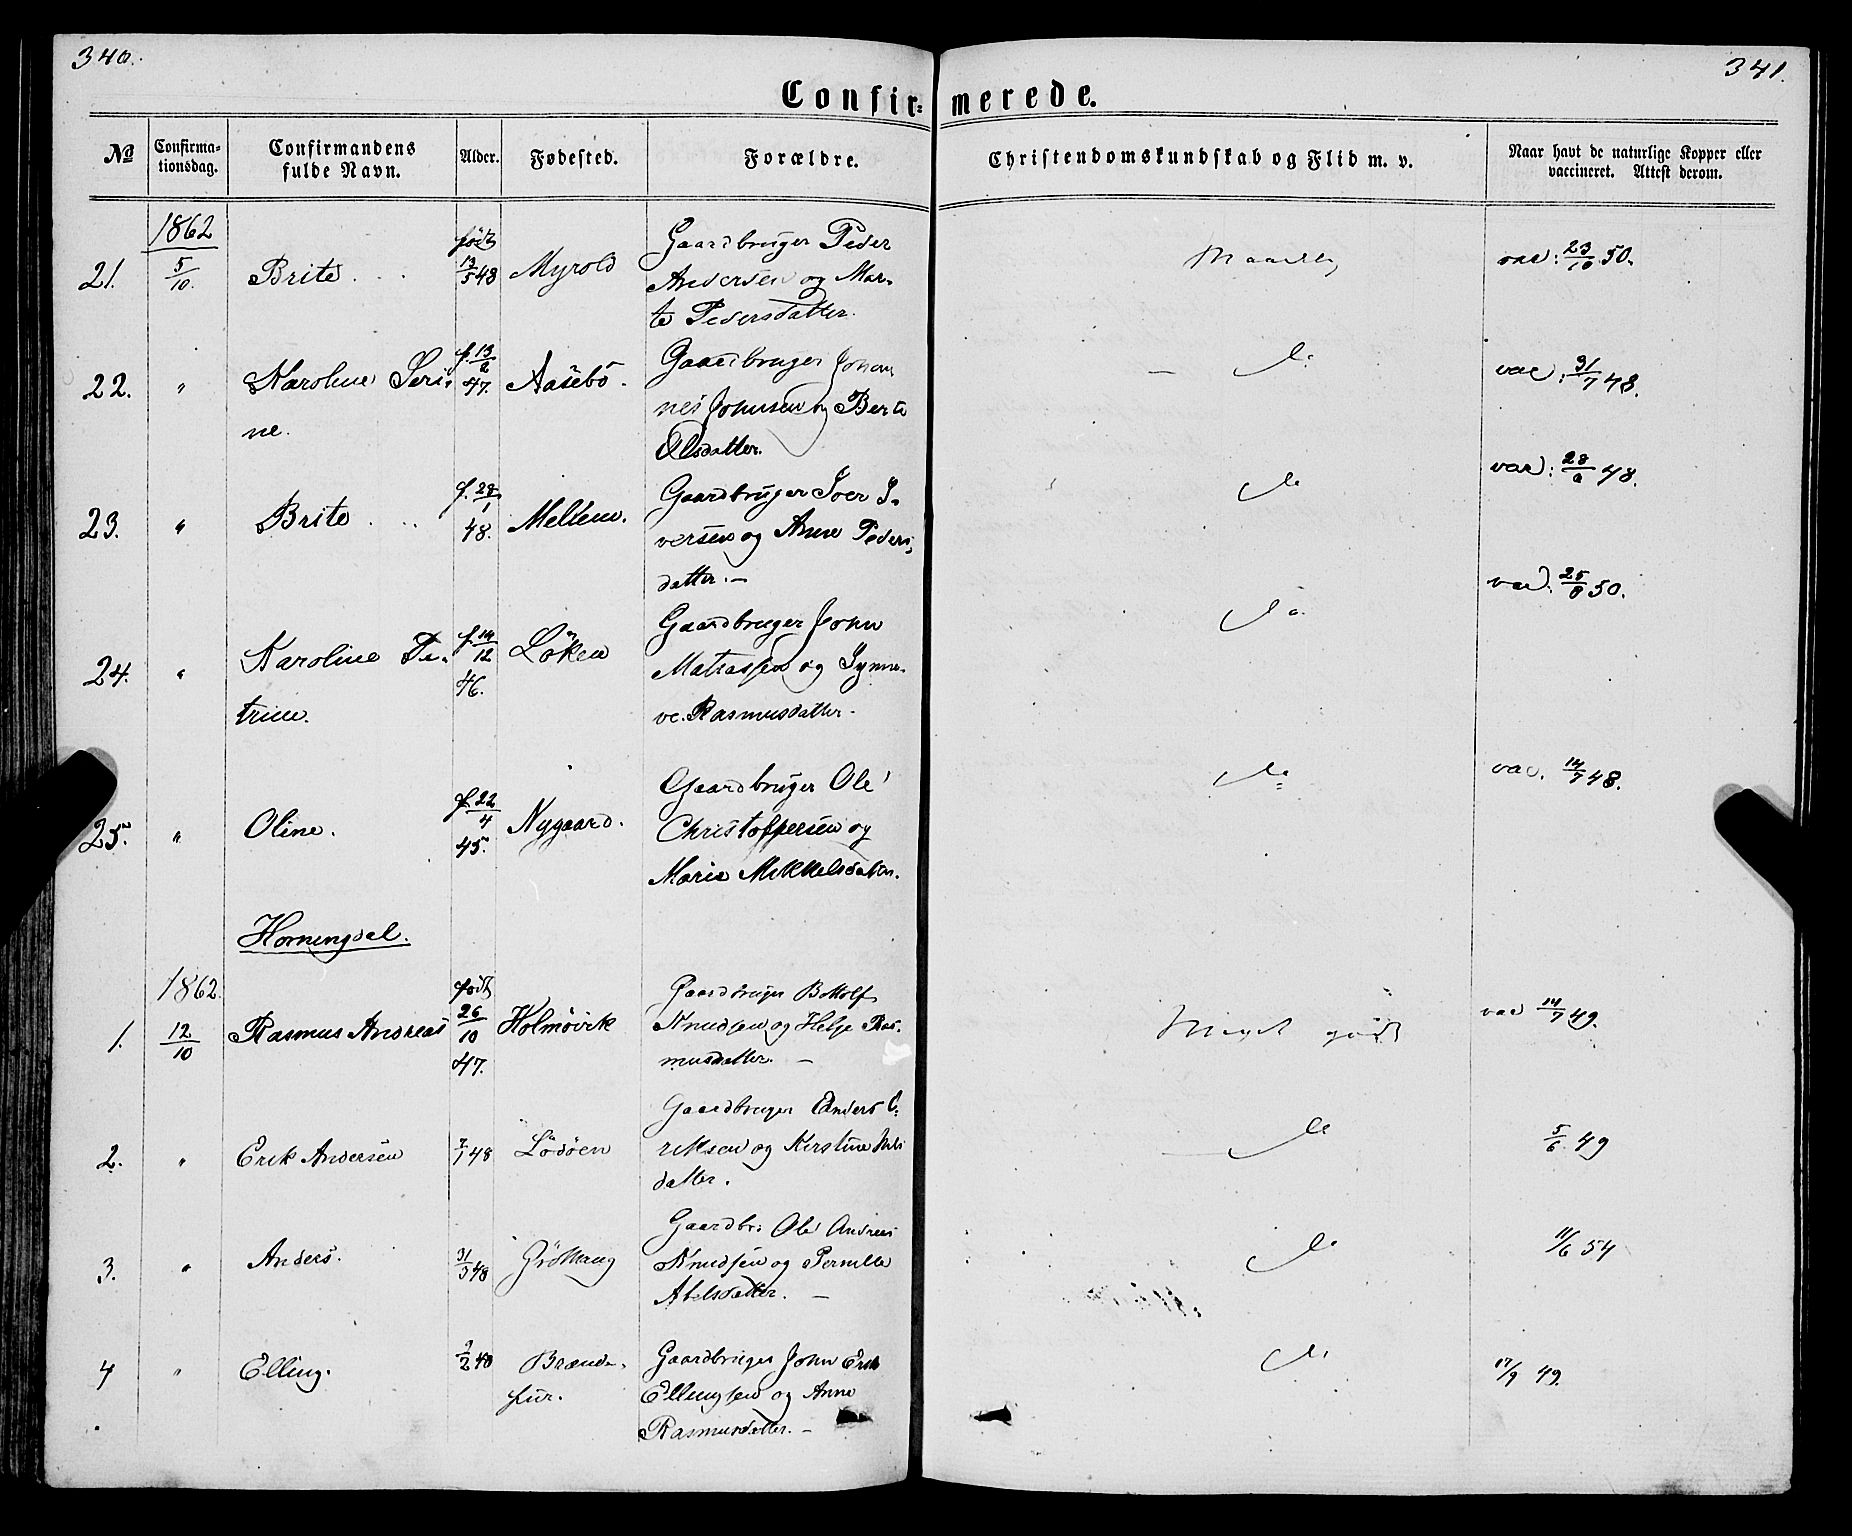 340.
341.
Confir= merede.
No
Confirma-
tionsdag.
Confirmandens
fulde Navn.
Alder.
Fødested.
Forældre.
Christendomskundskab og Flid m. v.
Naar havt de naturlige Kopper eller
vaccineret. Attest derom.
1862
21. 5/10. Brite født 13/5 48 Myrold
Gaardbruger Peder
Andersen og Mar-
te Pedersdatter.
Maadelig
vac: 23/10 50.
22. " Karoline Seri-
ne.
f. 13/2
47. Aasebö.
Gaardbruger Johan
nes Johnsen og Berte
Olsdatter.
do
vac: 31/7 48.
23. " Brite f. 28/1
48. Mellem.
Gaardbruger Iver I-
versen og Anne Peders
datter.—
do
vac: 28/8 48.
24. " Karoline Pe-
trine.
f. 14/12
46. Löken
Gaardbruger John
Matiassen og Synne-
ve Rasmusdatter.
do
vac: 25/8 50.
25. " Oline. f. 22/4
45. Nygaard.
Gaardbruger Ole
Christoffersen og
Marie Mikkelsdatter.
do
vac. 14/7 48.
Horningdal.
1862.
1. 12/10 Rasmus Andreas født
26/10
47. Holmövik
Gaardbruger Bottolf
Knudsen og Helje Ras-
musdatter. —
Meget godt
vac 14/7 49.
2. " Erik Andersen 7/1 48 Lödöen
Gaardbruger Anders E-
riksen og Kirstine Nils
datter.
do
5/6 49
3. " Anders. 31/3 48 Gröttaug
Gaardbr: Ole Andreas
Knudsen og Pernille
Abelsdatter. —
do
11/6 54
4 " Elling. 2/2 48 Brænde-
fur.
Gaardbruger John Erik
Ellingsen og Anne
Rasmusdatter.—
do
17/9 49.